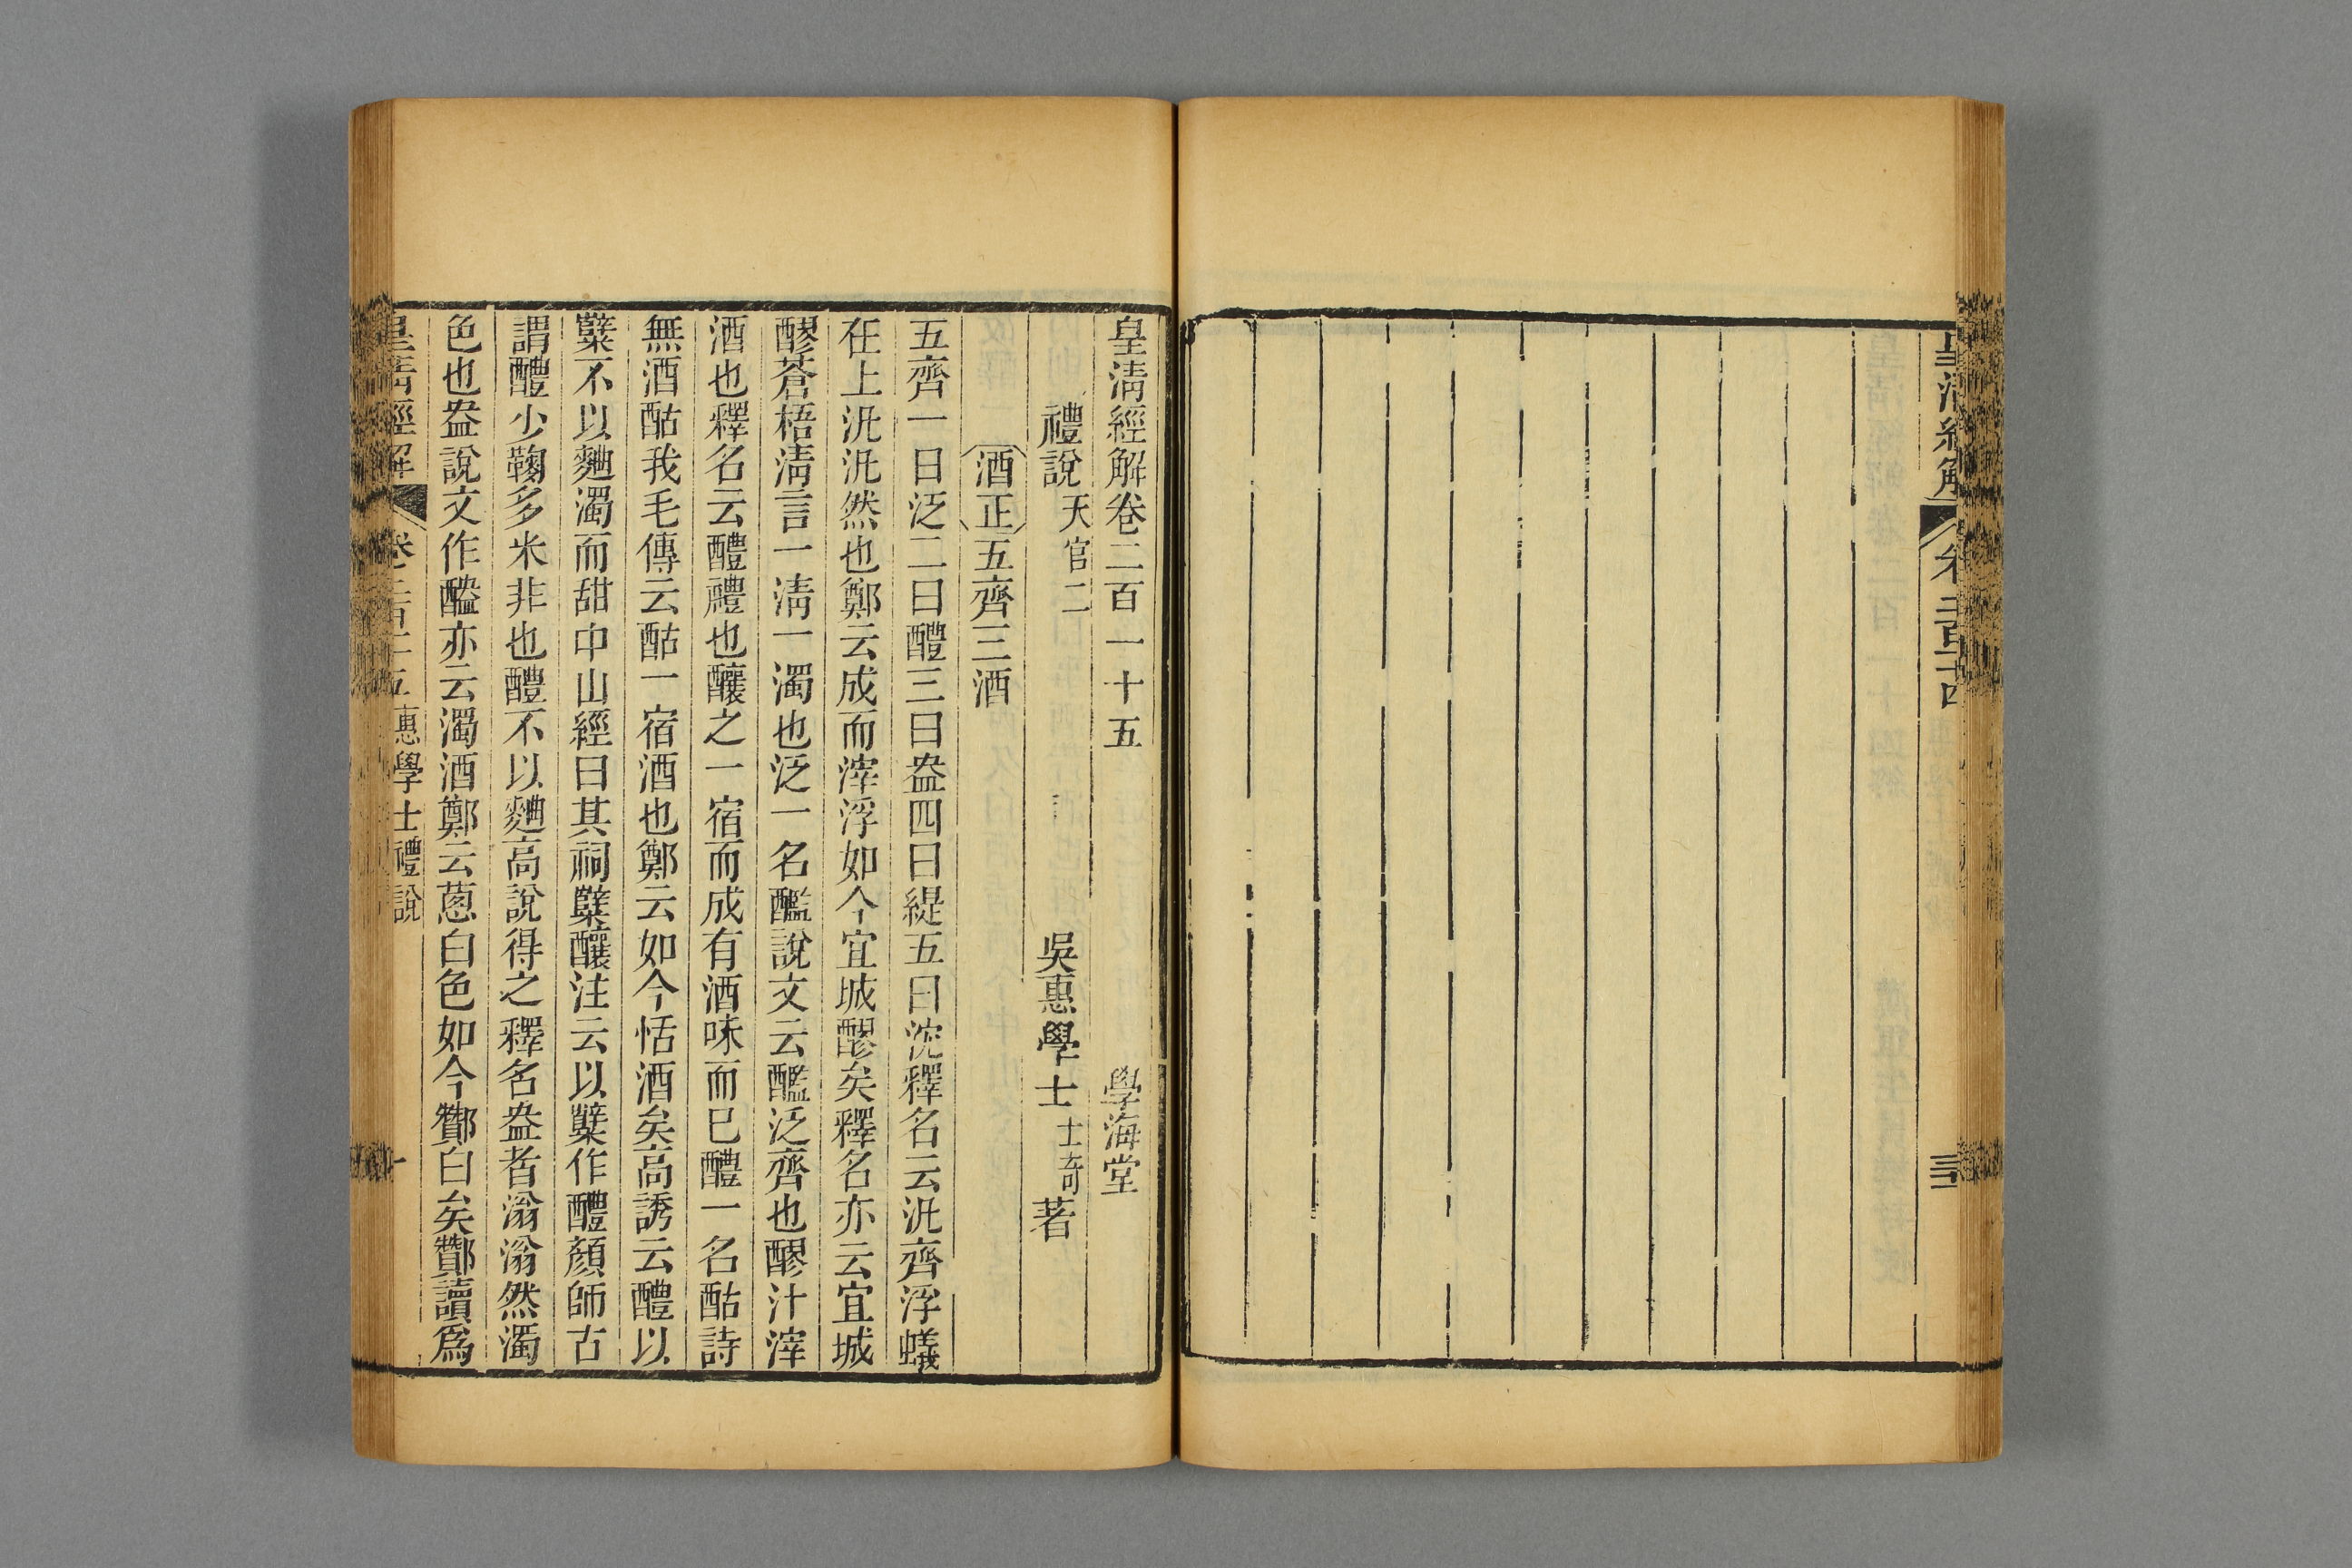 皇清經解
卷二百十四
三
皇清經解卷二百一十五
學海堂
禮說 天官二
吳惠學士士奇著
酒正 五齊三酒
五齊一曰泛二曰醴三曰盎四曰緹五曰沈釋名云汎齊浮蟻
在上汎汎然也鄭云成而滓浮如今宜城醪矣釋名亦云宜城
醪蒼梧清言一清一濁也泛一名醞說文云醞泛齊也醪汁滓
酒也釋名云醴禮也釀之一宿而成有酒味而已醴一名酤詩
無酒酤我毛傳云酤一宿酒也鄭云如今恬酒矣高誘云醴以
糵不以麴濁而甜中山經曰其祠糵釀注云以糵作醴顏師古
謂醴少鞠多米非也醴不以麴高說得之釋名盎者滃滃然濁
色也盎說文作醠亦云濁酒鄭云蔥白色如今酇白矣酇讀爲
皇清經解
卷二百十五
惠學士禮說
一